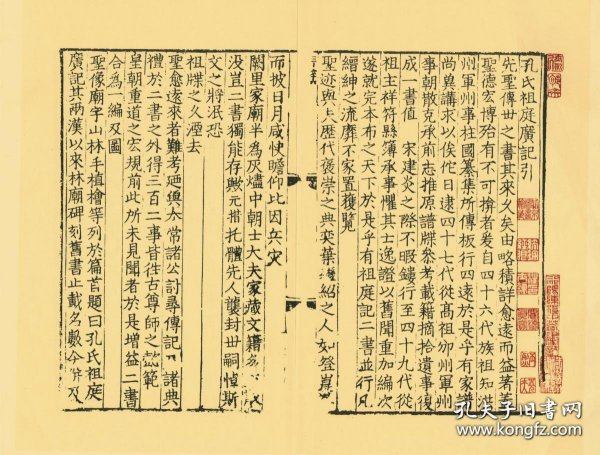 孔氏祖庭廣記引
先聖傳世之書其來久矣由略積詳愈遠而益著蓋
聖德宏博殆有不可揜者爰自四十六代族祖知洪
州軍州事柱國纂集所傳板行四遠於是乎有家譜
尚冀講求以俟他日逮四十七代從高祖邠州軍州
事朝散克承前志推原譜牒叅考載籍摘拾遺事復
成一書值 宋建炎之際不暇鏤行至四十九代從
祖主祥符縣簿承事懼其士逸證以舊聞重加編次
遂就完本布之天下於是乎有祖庭記二書並行凡
縉紳之流靡不家置複覽
聖迹與夫歷代褒崇之典奕葉繼紹之人如登崑
而披日月咸快瞻仰比因兵灾
闕里家廟半為灰燼中朝士大夫家藏文籍多
没豈二書獨能存歟元措托體先人襲封世嗣悼斯
文之將泯恐
祖牒之久湮去
聖愈遠來者難考廼與太常諸公討尋傳記 諸典
禮於二書之外得三百二事皆往古尊師之懿範
皇朝重道之宏規前此所未見聞者於是增益二書
合為一編及圖
聖像廟宇山林手植檜等列於篇首題曰孔氏祖庭
廣記其兩漢以來林廟碑刻舊書止載名數今併及
孔夫子旧书网
www.kongfz.com